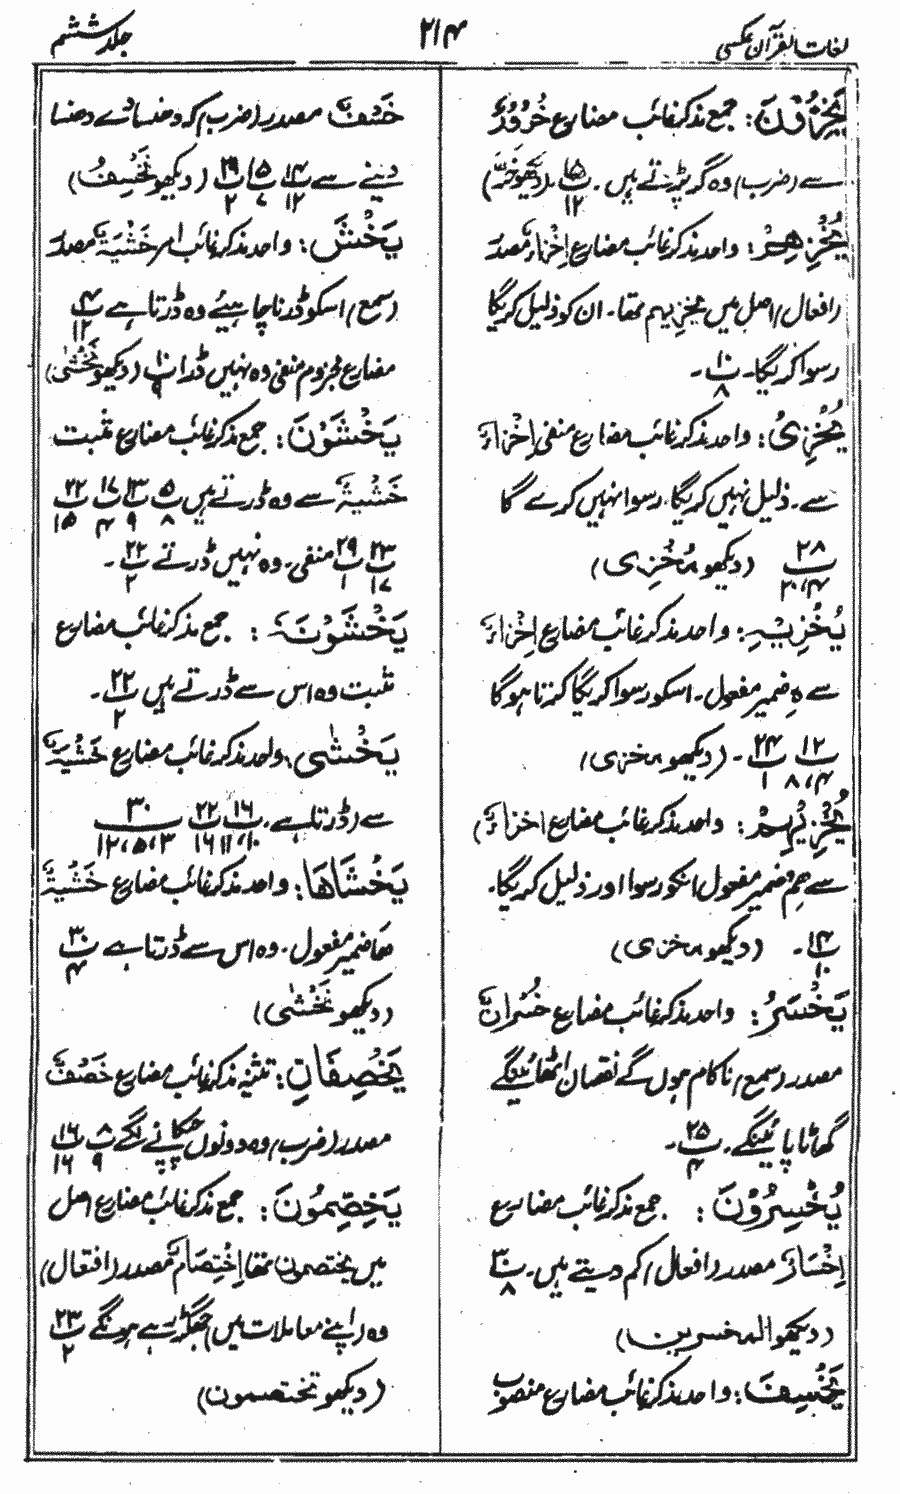 لغات القرآن عکسی
۲۱۴
جلد ششم
یَخِرُّوْنَ: جمع مذکر غائب مضارع خُرُوْرٌ
سے (ضرب) وہ گر پڑتے ہیں۔ پ۱۵ ۱۲ (دیکھو خَرَّ)
یُخْزِهِمْ: واحد مذکر غائب مضارع اِخْزَاءٌ مصدر
(افعال) اصل میں یخزیہم تھا۔ ان کو ذلیل کریگا
رسوا کریگا۔ پ۱۰ ۸۔
یُخْزِیْ: واحد مذکر غائب مضارع منفی اِخْزَاءٌ
سے۔ ذلیل نہیں کریگا۔ رسوا نہیں کرے گا
پ۲۸ ۲۰،۴ (دیکھو مُخْزِی)
یُخْزِیْہِ: واحد مذکر غائب مضارع اِخْزَاءٌ
سے ہٖ ضمیر مفعول۔ اسکو رسوا کریگا کرتا ہوگا
پ۱۲ ۸،۴ پ۲۴ ۱۔ (دیکھو مخزی)
یُخْزِیْہِمْ: واحد مذکر غائب مضارع (اخزاءٌ)
سے ھِمْ ضمیر مفعول انکو رسوا اور ذلیل کریگا۔
پ۱۴ ۱۰۔ (دیکھو مخزی)
یَخْسَرُ: واحد مذکر غائب مضارع خُسْرَانٌ
مصدر (سمع) ناکام ہوں گے نقصان اٹھائینگے
گھاٹا پائینگے۔ پ۲۵ ۴۔
یُخْسِرُوْنَ: جمع مذکر غائب مضارع
اِخْسَارٌ مصدر (افعال) کم دیتے ہیں۔ پ۳۰ ۸
(دیکھو المخسرین)
یَخْسِفَ: واحد مذکر غائب مضارع منصوب
خَسْفٌ مصدر (ضرب) کہ دھنسا دے دھنسا
دینے سے پ۱۴ ۱۲ پ۱۵ ۷ پ۲۹ ۲ (دیکھو نَخْسِفُ)
یَخْشَ: واحد مذکر غائب امر خَشْیَةٌ مصدر
(سمع) اسکو ڈرنا چاہیئے وہ ڈرتا ہے پ۴ ۱۲
مضارع مجزوم منفی وہ نہیں ڈرا پ۱۰ ۹ (دیکھو نَخْشٰی)
یَخْشَوْنَ: جمع مذکر غائب مضارع مثبت
خَشْیَةٌ سے وہ ڈرتے ہیں پ۵ ۸ پ۱۳ ۹ پ۱۷ ۴ پ۲۲ ۱۵
پ۲۳ ۱۷ پ۲۹ ۱ منفی۔ وہ نہیں ڈرتے پ۲۲ ۲۔
یَخْشَوْنَہٗ: جمع مذکر غائب مضارع
مثبت وہ اس سے ڈرتے ہیں پ۲۲ ۲۔
یَخْشٰی: واحد مذکر غائب مضارع خَشْیَةٌ
سے (ڈرتا ہے۔ پ۱۶ ۱۱،۱۰ پ۲۲ ۱۶ پ۳۰ ۱۲،۵،۳
یَخْشَاھَا: واحد مذکر غائب مضارع خَشْیَةٌ
ھَا ضمیر مفعول۔ وہ اس سے ڈرتا ہے پ۳۰ ۴
(دیکھو نَخْشٰی)
یَخْصِفَانِ: تثنیہ مذکر غائب مضارع خَصْفٌ
مصدر (ضرب) وہ دونوں چپکانے لگے پ۸ ۹ پ۱۶ ۱۶
یَخِصِّمُوْنَ: جمع مذکر غائب مضارع اصل
میں یختصمون تھا اِخْتِصَامٌ مصدر (افتعال)
وہ اپنے معاملات میں جھگڑ رہے ہونگے پ۲۳ ۲
(دیکھو تختصمون)